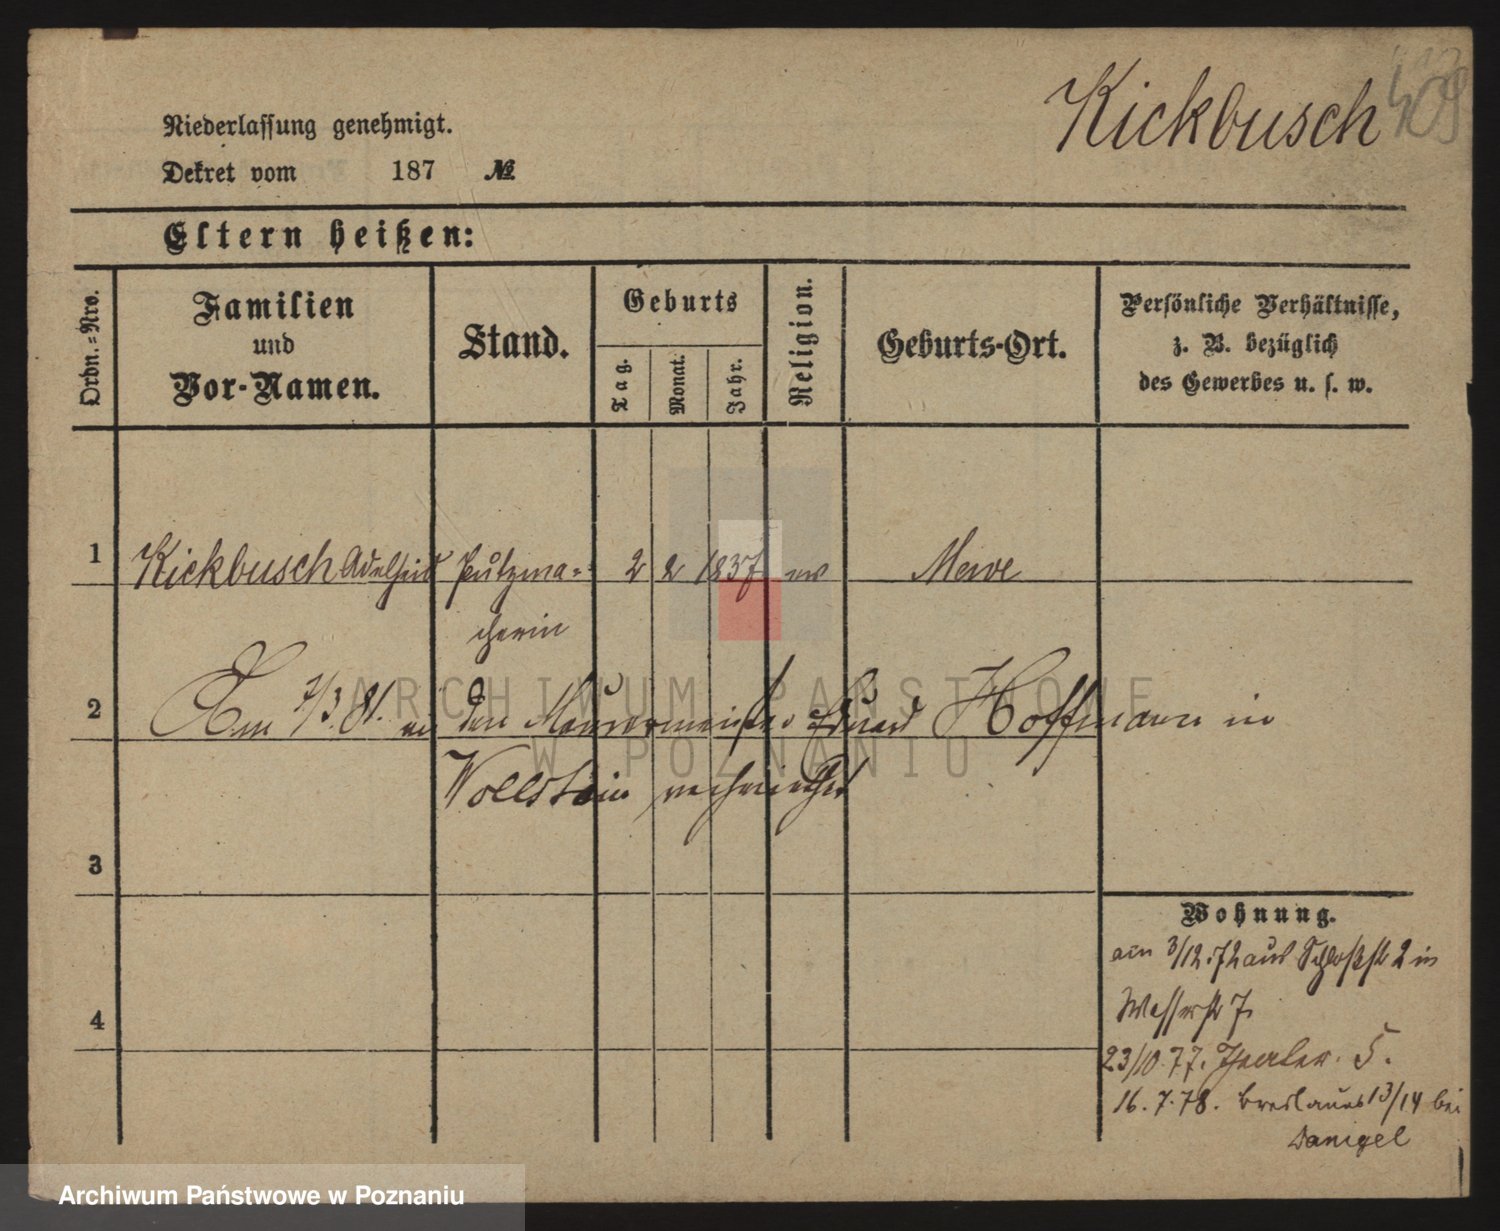 Kickbusch
Niederlassung genehmigt.
Dekret vom 187 №
Eltern heißen:
Ordn.=Nro.
Familien
und
Vor-Namen.
Stand.
Geburts
Tag.
Monat.
Jahr.
Religion.
Geburts-Ort.
Persönliche Verhältnisse,
z. B. bezüglich
des Gewerbes u. s. w.
1 Kickbusch Adelheid Putzma= 2 2 1837 ev Mewe
cherin
2 Am 7/3.81. an den Maurermeister Eduard Hoffmann in
Wollstein verheirathet
3
4
Wohnung.
am 3/12.72 aus Schloßstr 2 in
Wasserstr 7.
23/10.77. Theater. 5.
16.7.78. Breslauer 13/14 bei
ARCHIWUM PAŃSTWOWE
W POZNANIU
Archiwum Państwowe w Poznaniu